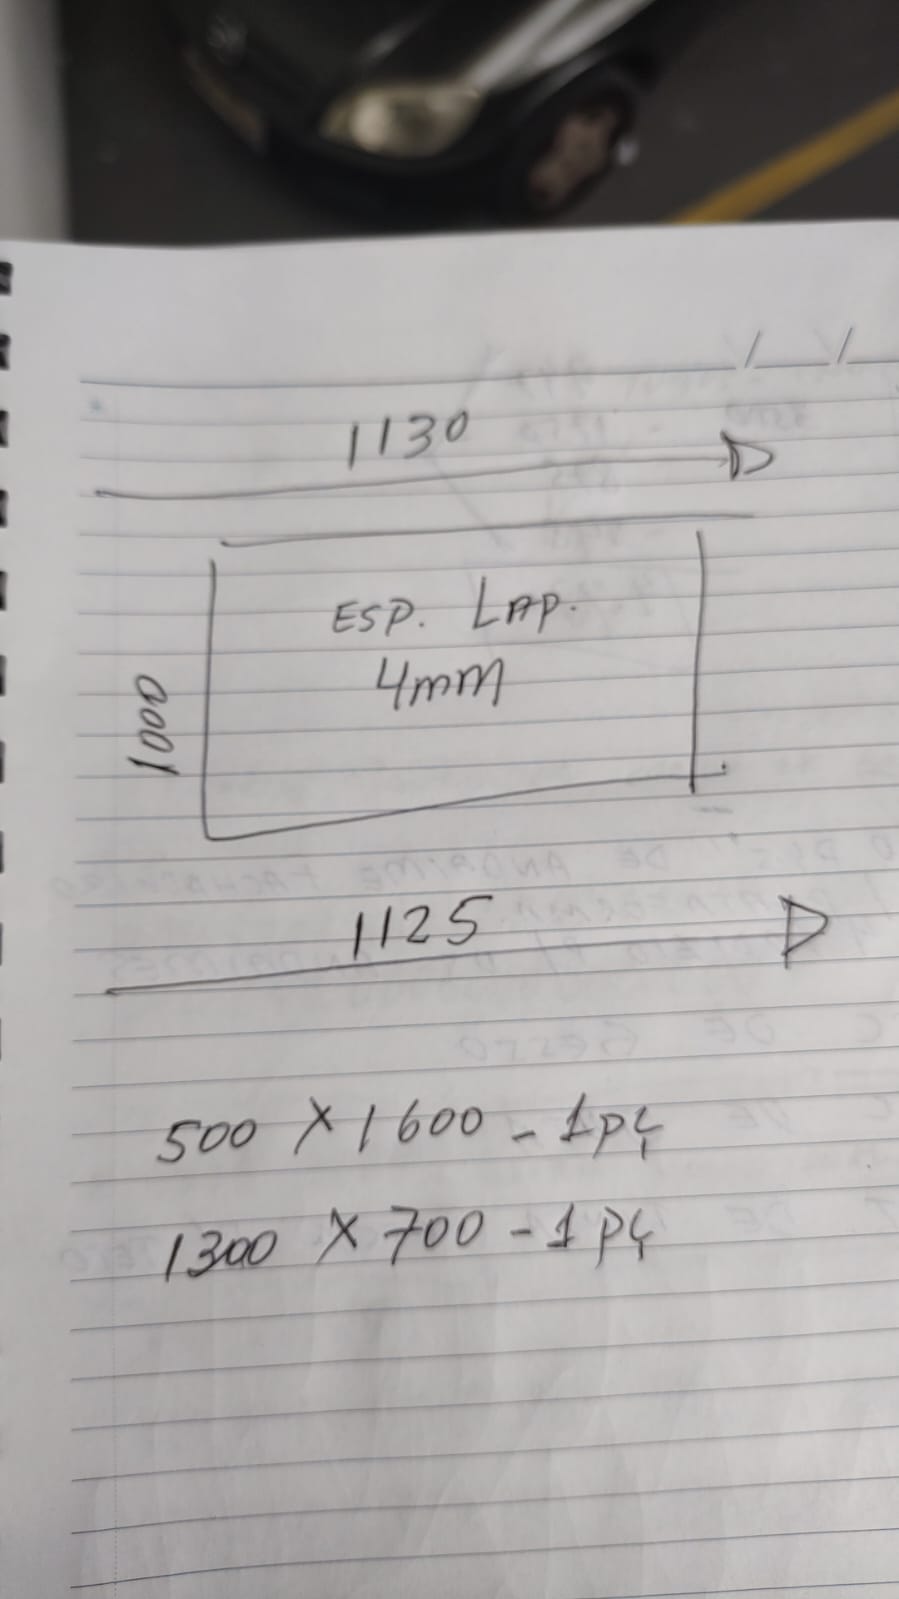 1130
ESP. LAP.
4mm
1000
1125
500 X 1600 - 1pç
1300 X 700 - 1pç